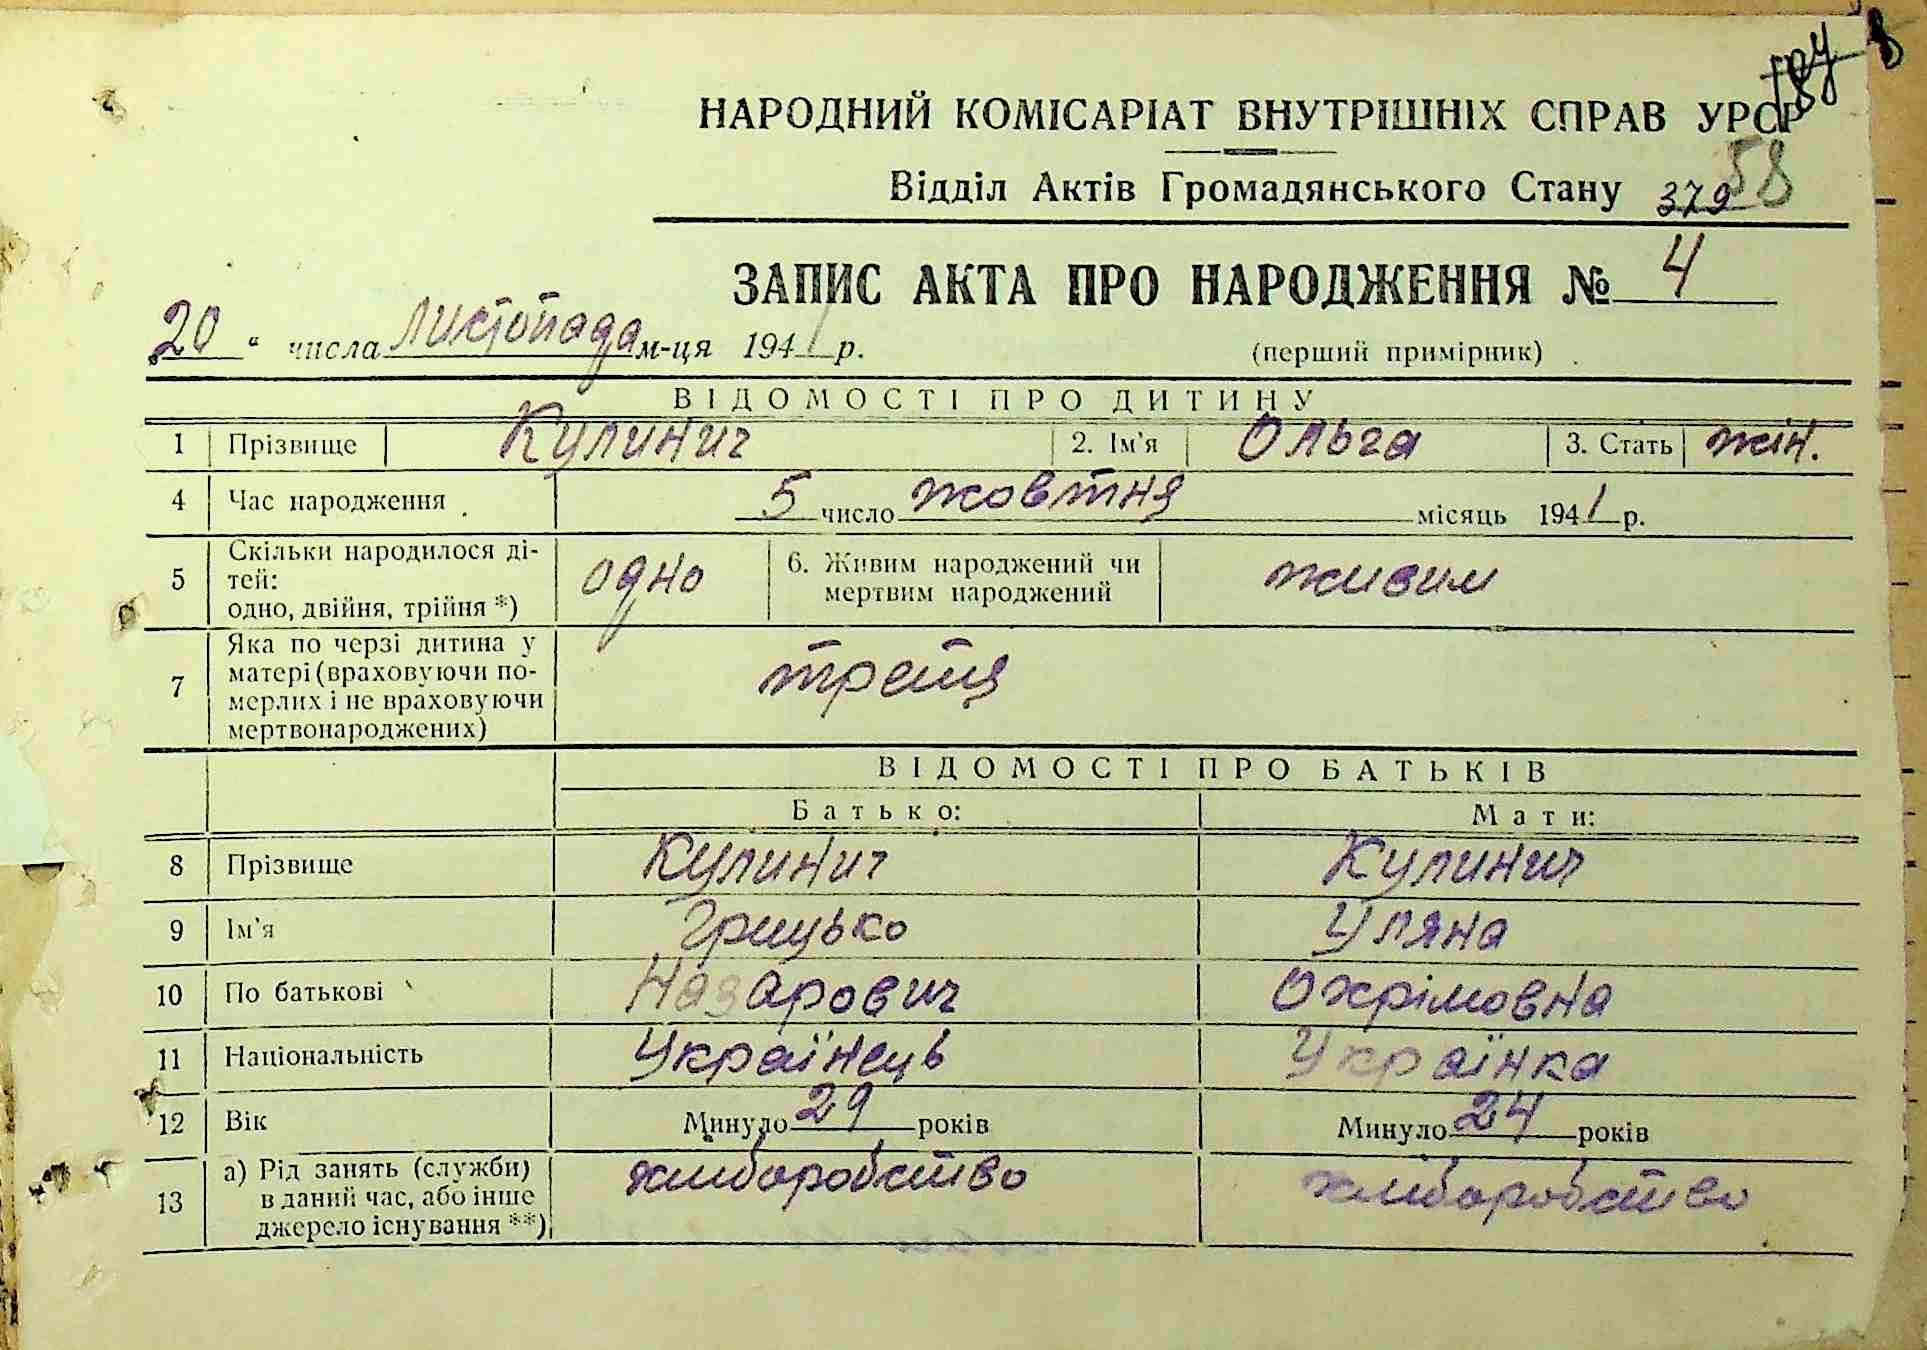 8
НАРОДНИЙ КОМІСАРІАТ ВНУТРІШНІХ СПРАВ УРСР
58
Відділ Актів Громадянського Стану 379
ЗАПИС АКТА ПРО НАРОДЖЕННЯ № 4
20 " числа листопада м-ця 1941 р. (перший примірник)
ВІДОМОСТІ ПРО ДИТИНУ
1 Прізвище Кулинич 2. Ім'я Ольга 3. Стать жін.
4 Час народження 5 число жовтня місяць 1941 р.
5 Скільки народилося ді-
тей:
одно, двійня, трійня *) одно 6. Живим народжений чи
мертвим народжений живим
7 Яка по черзі дитина у
матері (враховуючи по-
мерлих і не враховуючи
мертвонароджених) третя
ВІДОМОСТІ ПРО БАТЬКІВ
Батько: Мати:
8 Прізвище Кулинич Кулинич
9 Ім'я Грицько Уляна
10 По батькові Назарович Охрімовна
11 Національність Українець Українка
12 Вік Минуло 29 років Минуло 24 років
13 а) Рід занять (служби)
в даний час, або інше
джерело існування **) хліборобство хліборобство